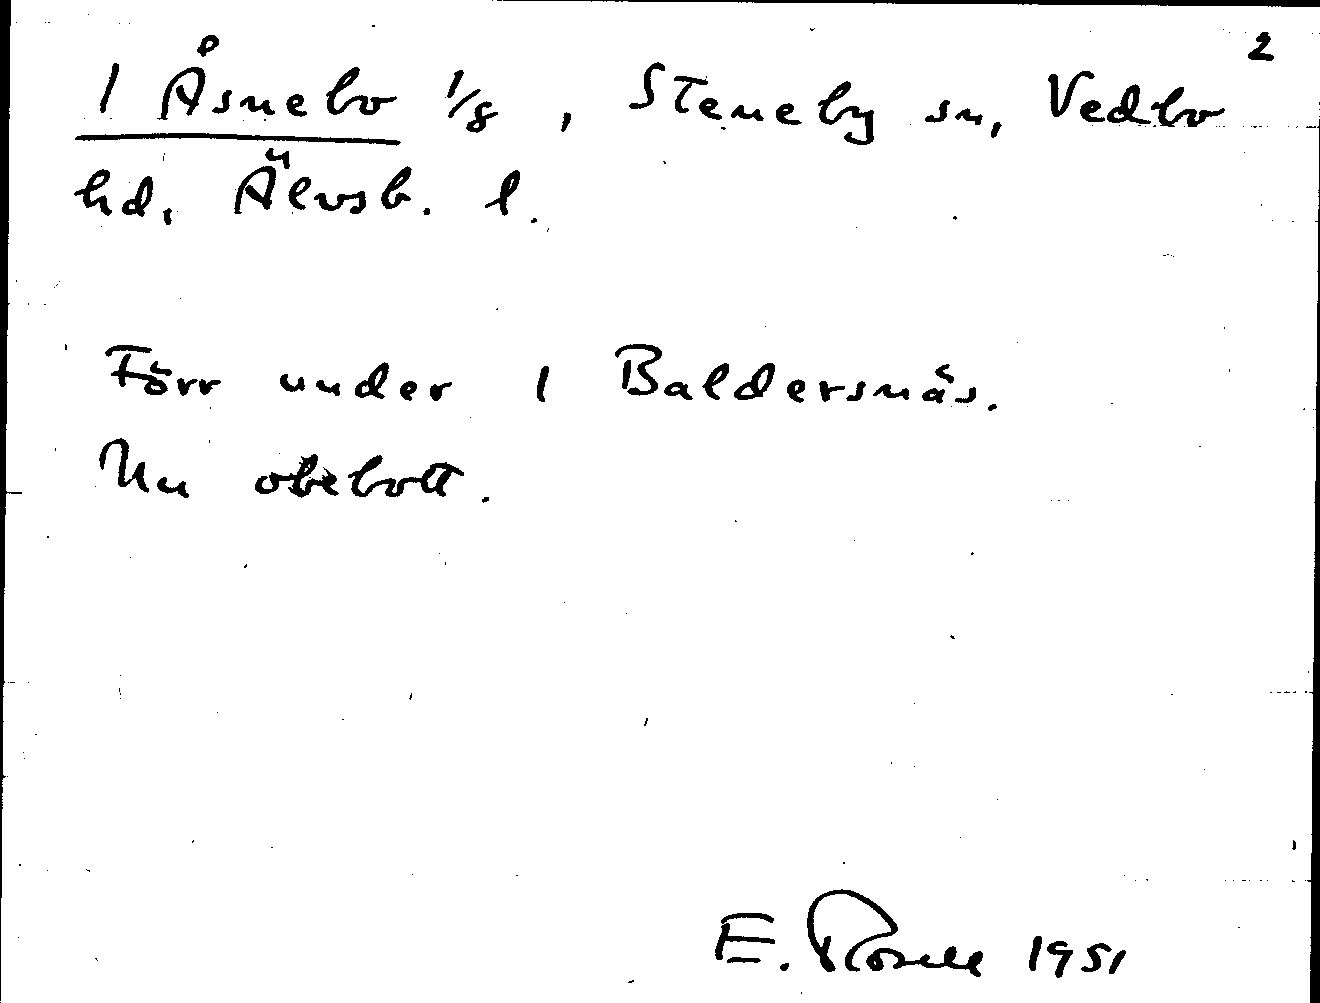 2
1 Åsnebo 1/8, Steneby sn, Vedbo
hd. Älvsb. l.
Förr under 1 Baldersnäs.
Nu obebott.
E. Rosell 1951